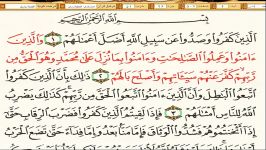 بِسْمِ اللَّهِ الرَّحْمَٰنِ الرَّحِيمِ
الَّذِينَ كَفَرُوا وَصَدُّوا عَن سَبِيلِ اللَّهِ أَضَلَّ أَعْمَالَهُمْ ١ وَالَّذِينَ
ءَامَنُوا وَعَمِلُوا الصَّالِحَاتِ وَءَامَنُوا بِمَا نُزِّلَ عَلَىٰ مُحَمَّدٍ وَهُوَ الْحَقُّ مِن
رَّبِّهِمْ كَفَّرَ عَنْهُمْ سَيِّئَاتِهِمْ وَأَصْلَحَ بَالَهُمْ ٢ ذَٰلِكَ بِأَنَّ الَّذِينَ كَفَرُوا
اتَّبَعُوا الْبَاطِلَ وَأَنَّ الَّذِينَ ءَامَنُوا اتَّبَعُوا الْحَقَّ مِن رَّبِّهِمْ كَذَٰلِكَ يَضْرِبُ
اللَّهُ لِلنَّاسِ أَمْثَالَهُمْ ٣ فَإِذَا لَقِيتُمُ الَّذِينَ كَفَرُوا فَضَرْبَ الرِّقَابِ حَتَّىٰ
إِذَا أَثْخَنتُمُوهُمْ فَشُدُّوا الْوَثَاقَ فَإِمَّا مَنًّا بَعْدُ وَإِمَّا فِدَاءً حَتَّىٰ تَضَعَ الْحَرْبُ